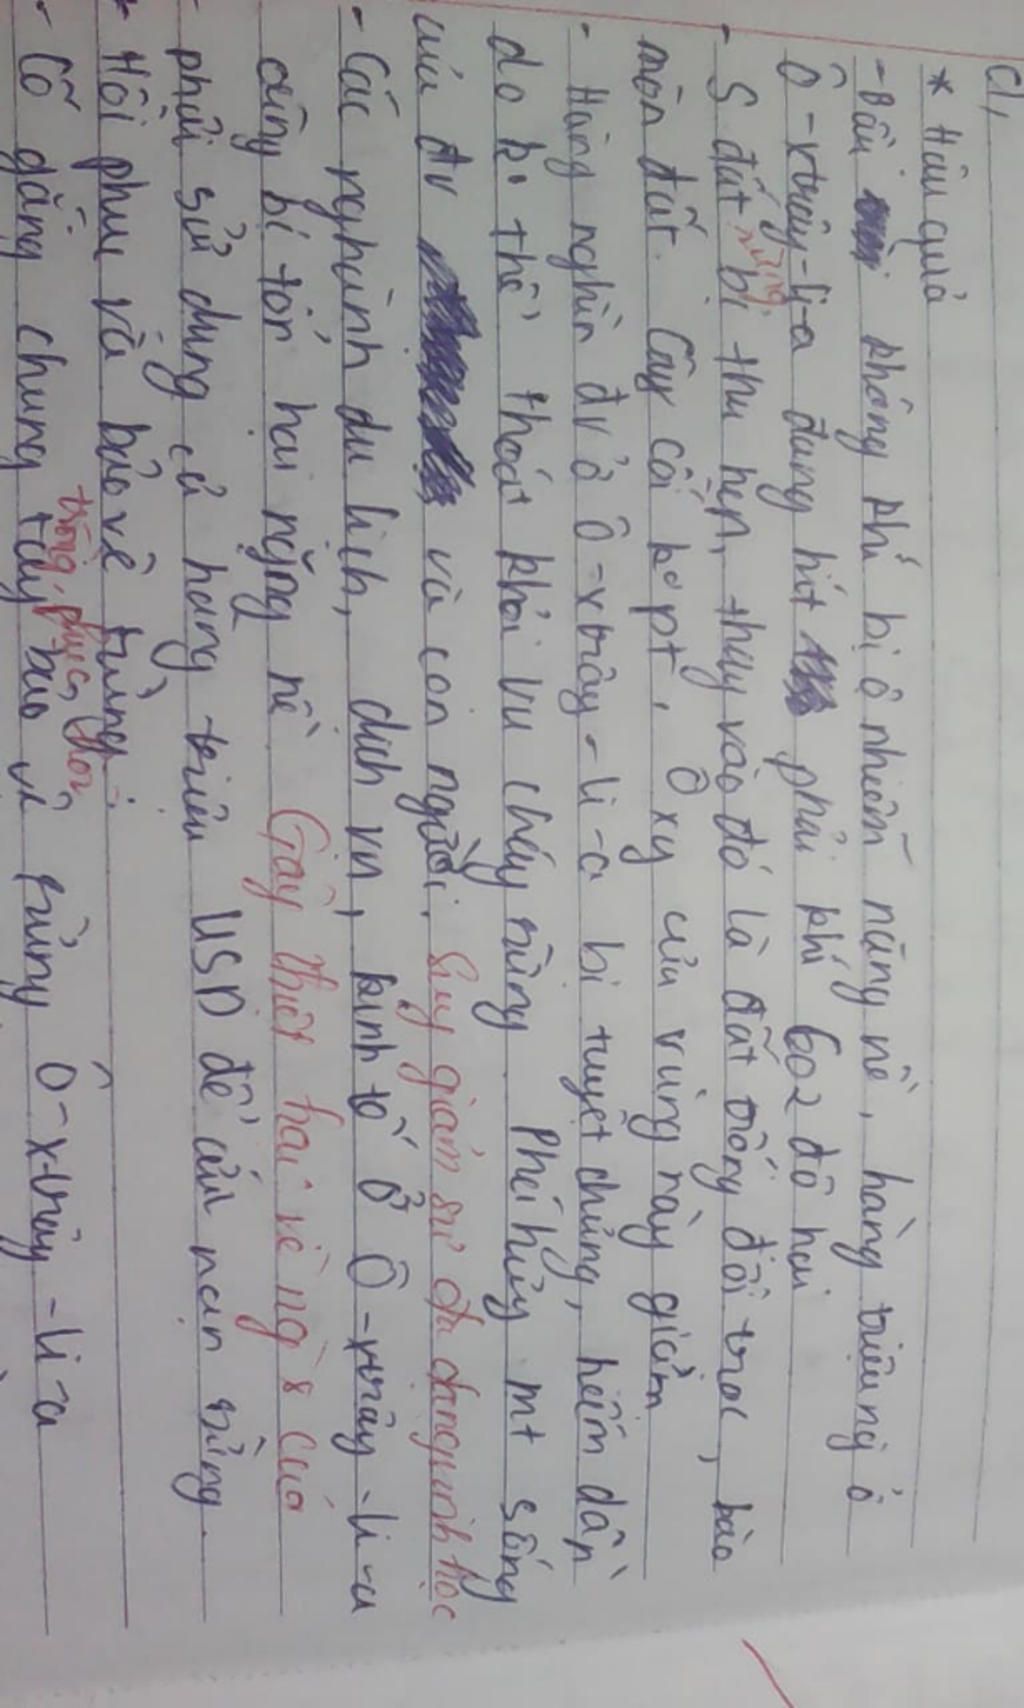 C1,
* Hậu quả
- Bầu không khí bị ô nhiễm nặng nề, hàng triệu ng ở
Ô-xtrây-li-a đang hít phải khí CO2 độc hại
- S đất rừng bị thu hẹp, thay vào đó là đất trống đồi trọc, bào
mòn đất. Cây cối ko pt, Ô xy của vùng này giảm
- Hàng nghìn đv ở Ô-xtrây-li-a bị tuyệt chủng, hiếm dần
do k thể thoát khỏi vụ cháy rừng. Phá hủy mt sống
của đv và con người. Suy giảm sự đa dạng sinh học
- Các nghành du lịch, dịch vụ, kinh tế ở Ô-xtrây-li-a
cũng bị tổn hại nặng nề. Gây thiệt hại về ng & của
- phải sử dụng cả hàng triệu USD để cứu nạn rừng.
* Hồi phục và bảo vệ rừng:
trồng, phục hồi
- Cố gắng chung tay bảo vệ rừng Ô-xtrây-li-a